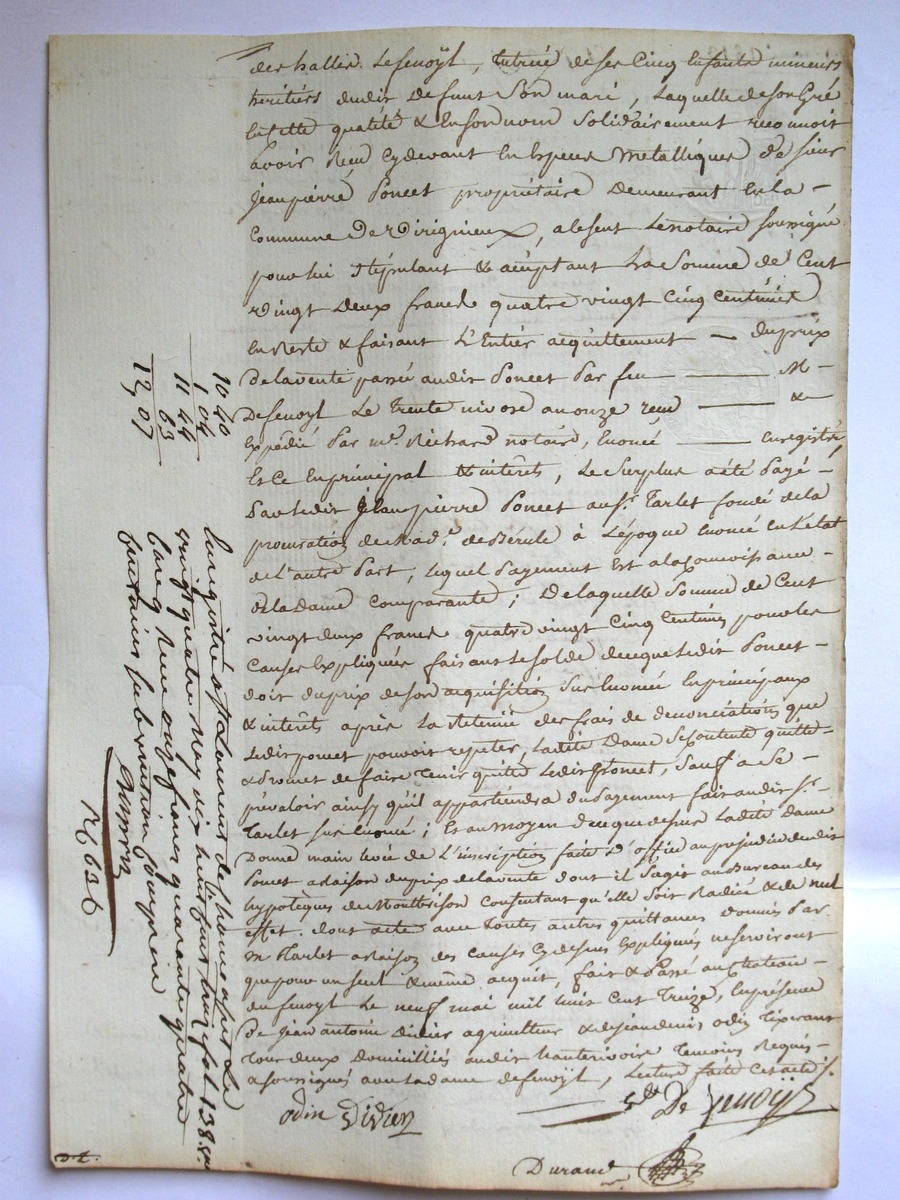 deshallier Defenoÿl, tutrice de ses Cinq Enfants mineurs
heritiers dudit defunt Son mari, Laquelle de son Gré
En cette qualité & En son nom Solidairement reconnoit
avoir Reçu Cydevant En Especes Metalliques de sieur
Jeanpierre Poncet propriétaire Demeurant En la —
Commune De Virigneux, absent Le notaire soussigné
pour lui Stipulant & acceptant La Somme de Cent
Vingt deux francs quatre vingt Cinq Centimes
En Reste & faisant L'Entier acquittement — du prix
De la vente passée audit Poncet Par feu —— M —
Defenoyl Le Trente nivose an onze reçu —— & —
Expédié Par me. Richard notaire, Enoncé —— Enregistré,
Et Ce En principal & interêts, Le Surplus a été Payé —
Par Ledit Jeanpierre Poncet au sr. Tarlet fondé de la
procuration de Mad.e de Bérule à L'époque Enoncée En L'etat
de L'autre Part, Lequel Payement Est a la Connoissance —
De la Dame Comparante; De laquelle Somme de Cent
vingt deux francs quatre vingt Cinq Centimes pour les
Causes Expliquées faisant Le Solde de ce que Ledit Poncet —
doit du prix de son acquisition Sus Enoncée En principaux
& interêts après La Retenue des frais de denonciations que
Ledit poncet pouvoit repeter, Ladite Dame Se Contente quitte —
& Promet de faire Tenir quitte Ledit Poncet, Sauf a Se
prévaloir ainsy qu'il appartiendra du Payement fait audit Sr.
Tarlet sus Enoncé; Et au moyen de ce que dessus Ladite Dame
Donne main Levée de L'inscription faite D'office au prejudice dudit
Poncet a Raison du prix de la vente dont il S'agit au Bureau des
hypoteques de Montbrison Consentant qu'elle Soit Radiée & de nul
effet. dont acte avec toutes autres quittances données Par
M Tarlet a Raison des Causes Cy dessus Expliquées ne serviront
que pour un seul & même acquit, fait & Passé au Chateau —
du fenoyl Le neuf mai mil huit Cent Treize, En présence
de Jean antoine Didier agriculteur & de Jean denis odin Tixerant
Tous deux Domiciliés audit hauterivoire Temoins Requis —
& soussignés avec La dame de fenoÿl, Lecture faite
odin Didier
De fenoÿl
Durand
10 40
1 04
11 44
63
12,07
Enregistré a St Laurent de Chamousset Le
vingt quatre May dix huit cent treize fol 138
Reçu onze francs quarante quatre
centimes subvention comprise